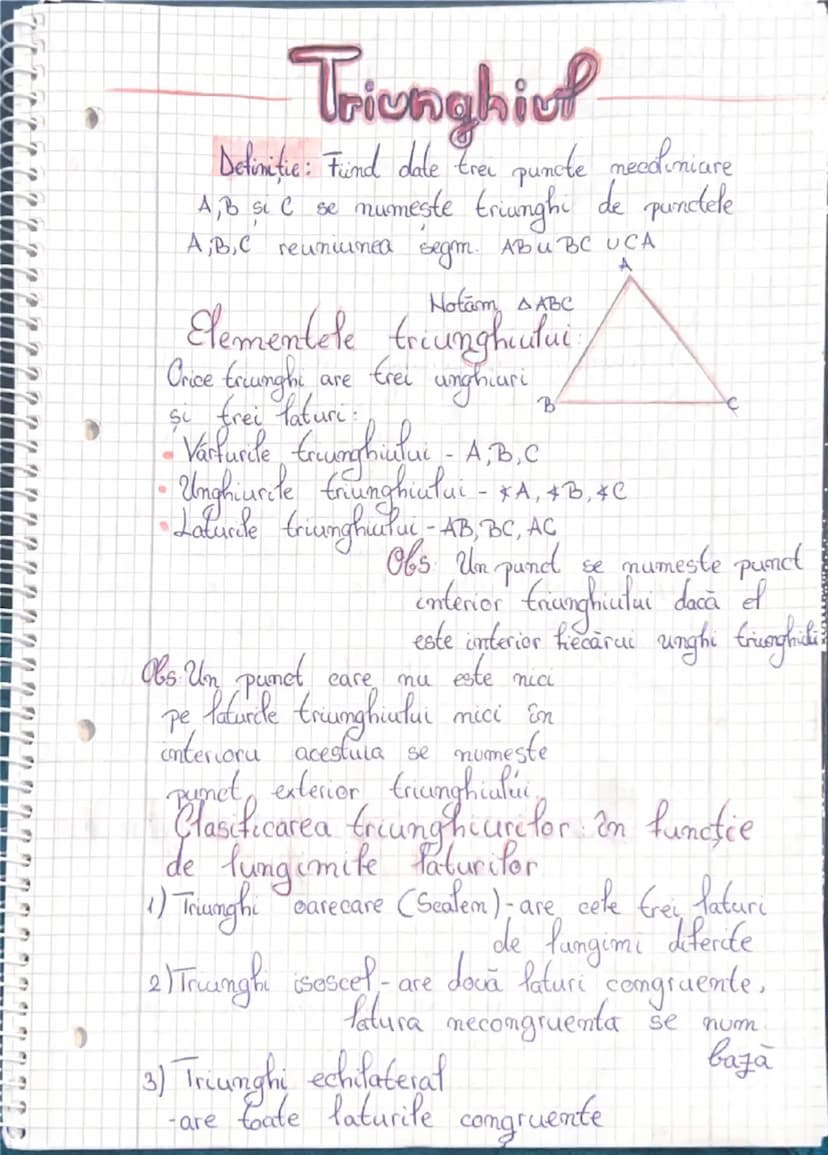 Triunghiul
Definiție: Fiind date trei puncte necoliniare
A, B și C se numește triunghi de punctele
A, B, C reuniunea segm. AB ∪ BC ∪ CA
A
Notăm △ABC
Elementele triunghiului:
Orice triunghi are trei unghiuri
B
C
și trei laturi:
• Vârfurile triunghiului - A, B, C
• Unghiurile triunghiului - ∢A, ∢B, ∢C
• Laturile triunghiului - AB, BC, AC
Obs: Un punct se numește punct
interior triunghiului dacă el
este interior fiecărui unghi triunghiului
Obs: Un punct care nu este nici
pe laturile triunghiului nici în
interioru acestuia se numește
punct exterior triunghiului.
Clasificarea triunghiurilor: în funcție
de lungimile laturilor
1) Triunghi oarecare (Scalen) - are cele trei laturi
de lungimi diferite
2) Triunghi isoscel - are două laturi congruente,
latura necongruenta se num.
bază
3) Triunghi echilateral
- are toate laturile congruente